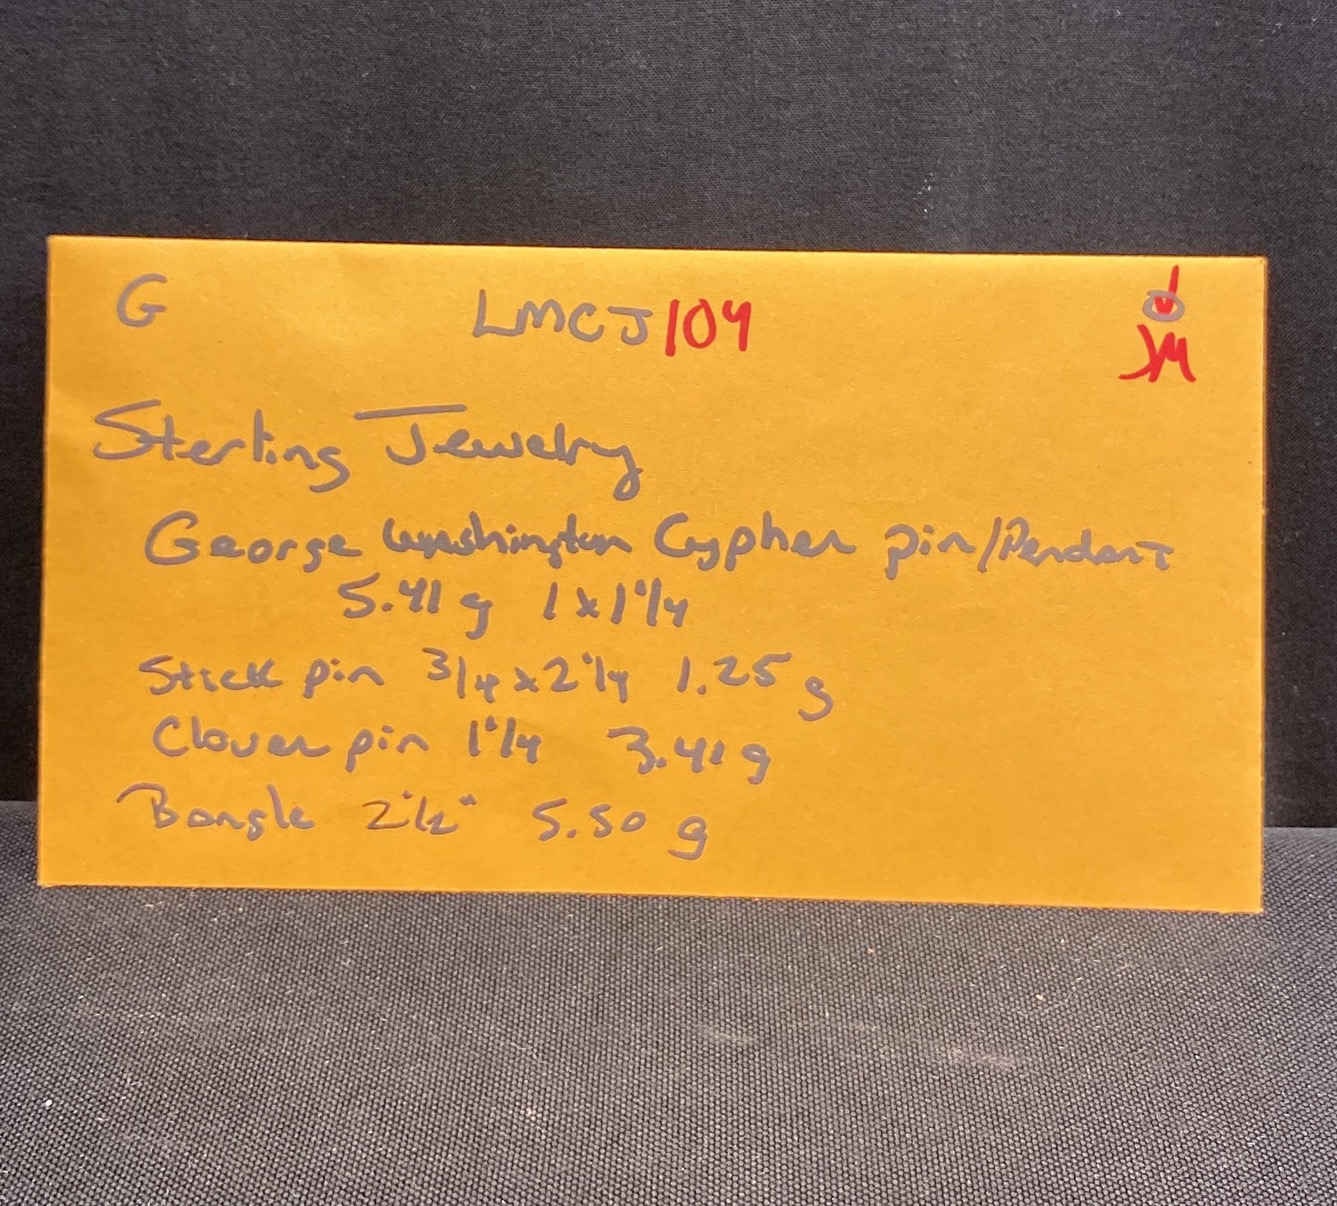 G LMCJ109 JM
Sterling Jewelry
George Washington Cypher pin/Pendant
5.41 g 1 x 1 1/4
Stick pin 3/4 x 2 1/4 1.25 g
Clover pin 1 1/4 3.41 g
Bangle 2 1/2" 5.50 g